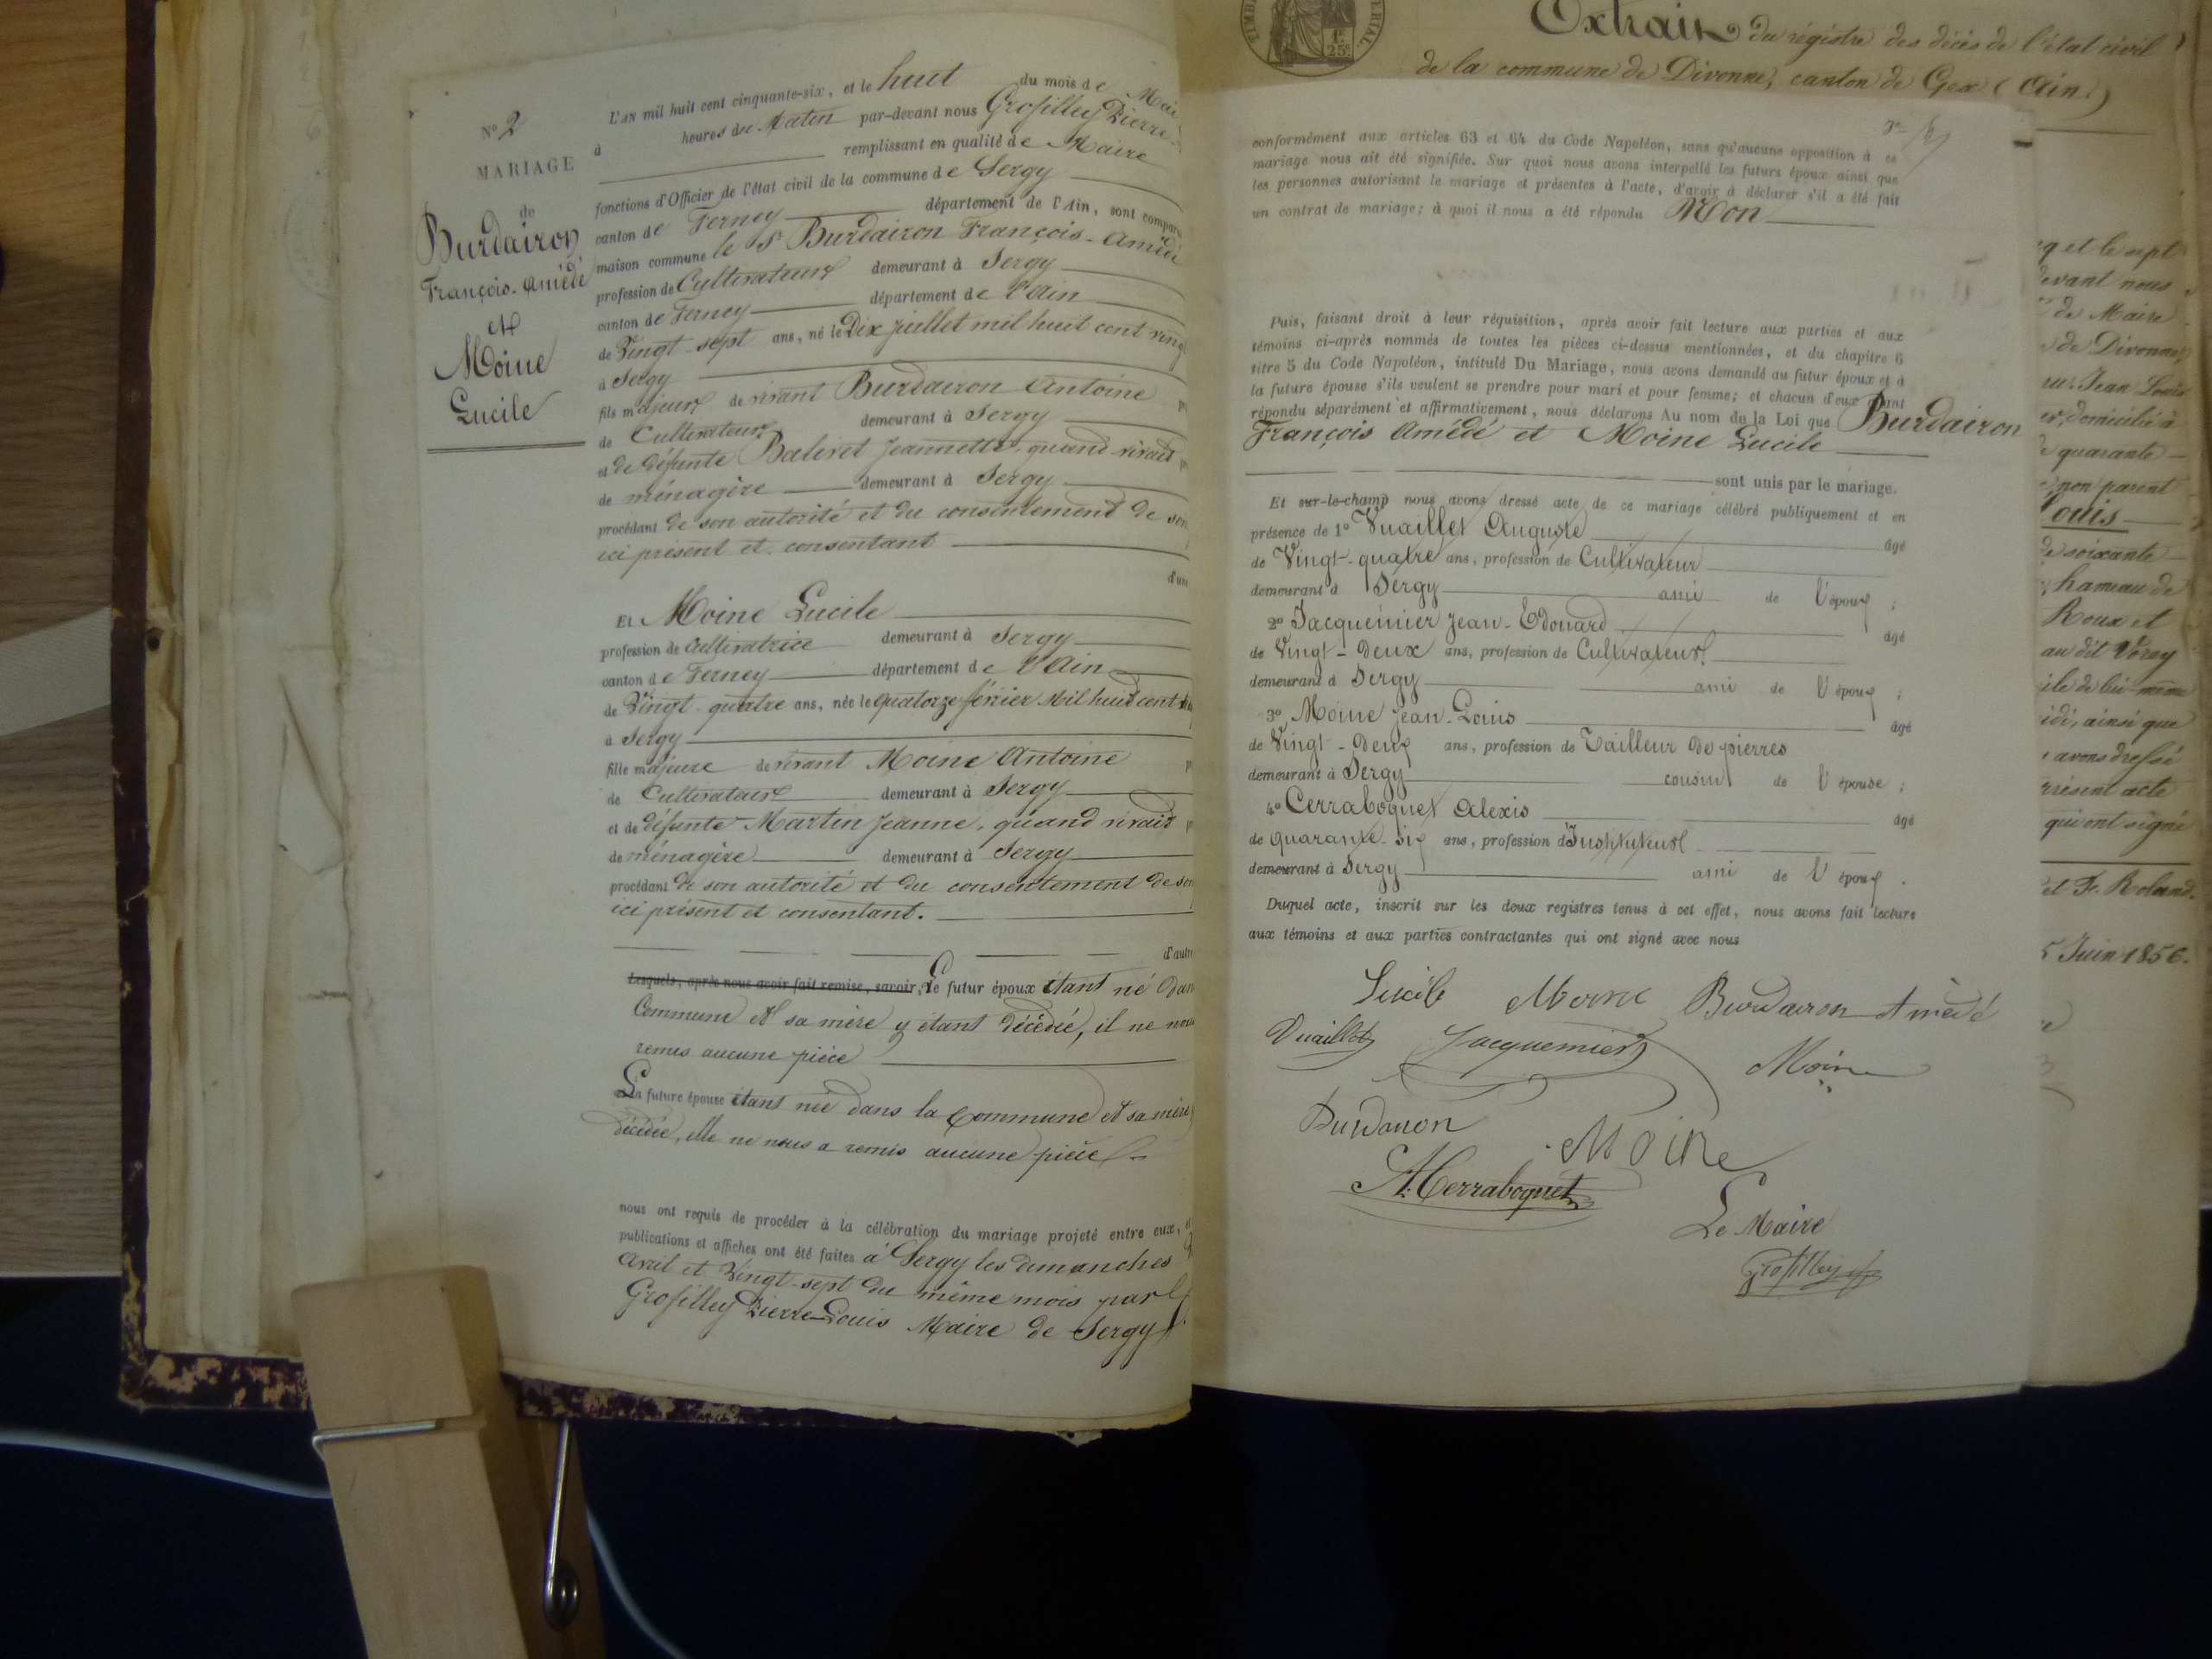 N° 2
MARIAGE
de
Burdairon
François-Amédé
et
Moine
Lucile
L'an mil huit cent cinquante-six, et le huit du mois de Mai
à heures du Matin par-devant nous Grosfilley Pierre
remplissant en qualité de Maire
fonctions d'Officier de l'état civil de la commune de Sergy
canton de Ferney département de l'Ain, sont compar
maison commune le Sr Burdairon François-Amédé
profession de Cultivateur demeurant à Sergy
canton de Ferney département de l'Ain
de Vingt-sept ans, né le Dix juillet mil huit cent ving
à Sergy
fils majeur de vivant Burdairon Antoine
de Cultivateur demeurant à Sergy
et de défunte Baleret Jeannette, quand vivait
de ménagère demeurant à Sergy
procédant de son autorité et du consentement de son
ici présent et consentant
d'une
Et Moine Lucile
profession de Cultivatrice demeurant à Sergy
canton de Ferney département de l'Ain
de Vingt-quatre ans, née le quatorze février Mil huit cent
à Sergy
fille majeure de vivant Moine Antoine
de Cultivateur demeurant à Sergy
et de défunte Martin Jeanne, quand vivait
de ménagère demeurant à Sergy
procédant de son autorité et du consentement de son
ici présent et consentant.
d'autre
Lesquels, après nous avoir fait remise, savoir: Le futur époux étant né dans
Commune et sa mère y étant décédée, il ne nous
remis aucune pièce
La future épouse étant née dans la Commune et sa mère
décédée, elle ne nous a remis aucune pièce
nous ont requis de procéder à la célébration du mariage projeté entre eux,
publications et affiches ont été faites à Sergy les dimanches
avril et Vingt-sept du même mois par
Grosfilley Pierre-Louis Maire de Sergy
Extrait du régistre des décès de l'état civil
de la commune de Divonne, canton de Gex (Ain.)
conformément aux articles 63 et 64 du Code Napoléon, sans qu'aucune opposition à ce
mariage nous ait été signifiée. Sur quoi nous avons interpellé les futurs époux ainsi que
les personnes autorisant le mariage et présentes à l'acte, d'avoir à déclarer s'il a été fait
un contrat de mariage; à quoi il nous a été répondu Non
Puis, faisant droit à leur réquisition, après avoir fait lecture aux parties et aux
témoins ci-après nommés de toutes les pièces ci-dessus mentionnées, et du chapitre 6
titre 5 du Code Napoléon, intitulé Du Mariage, nous avons demandé au futur époux et à
la future épouse s'ils veulent se prendre pour mari et pour femme; et chacun d'eux ayant
répondu séparément et affirmativement, nous déclarons Au nom de la Loi que Burdairon
François Amédé et Moine Lucile
sont unis par le mariage.
Et sur-le-champ nous avons dressé acte de ce mariage célébré publiquement et en
présence de 1° Vuaillet Auguste âgé
de Vingt-quatre ans, profession de Cultivateur
demeurant à Sergy ami de l'époux ;
2° Jacquémier Jean-Edouard âgé
de Vingt-Deux ans, profession de Cultivateur
demeurant à Sergy ami de l'époux ;
3° Moine Jean-Louis âgé
de Vingt-Deux ans, profession de Tailleur de pierres
demeurant à Sergy cousin de l'épouse ;
4° Cerraboquet Alexis âgé
de quarante-six ans, profession d'Instituteur
demeurant à Sergy ami de l'époux .
Duquel acte, inscrit sur les deux registres tenus à cet effet, nous avons fait lecture
aux témoins et aux parties contractantes qui ont signé avec nous
Lucile Moine Burdairon Amédé
Vuaillet Jacquemier Moine
Burdairon Moine
A. Cerraboquet
Le Maire
Grosfilley
q et le sept
devant nous
de Maire
de Divonne
Jean Louis
domicilié à
quarante
non parent
Louis
de soixante
hameau de
Roux et
au dit Vérey
ile de lui-même
idi, ainsi que
avons dressé
présent acte
qui ont signé
et F. Roland.
5 Juin 1856.